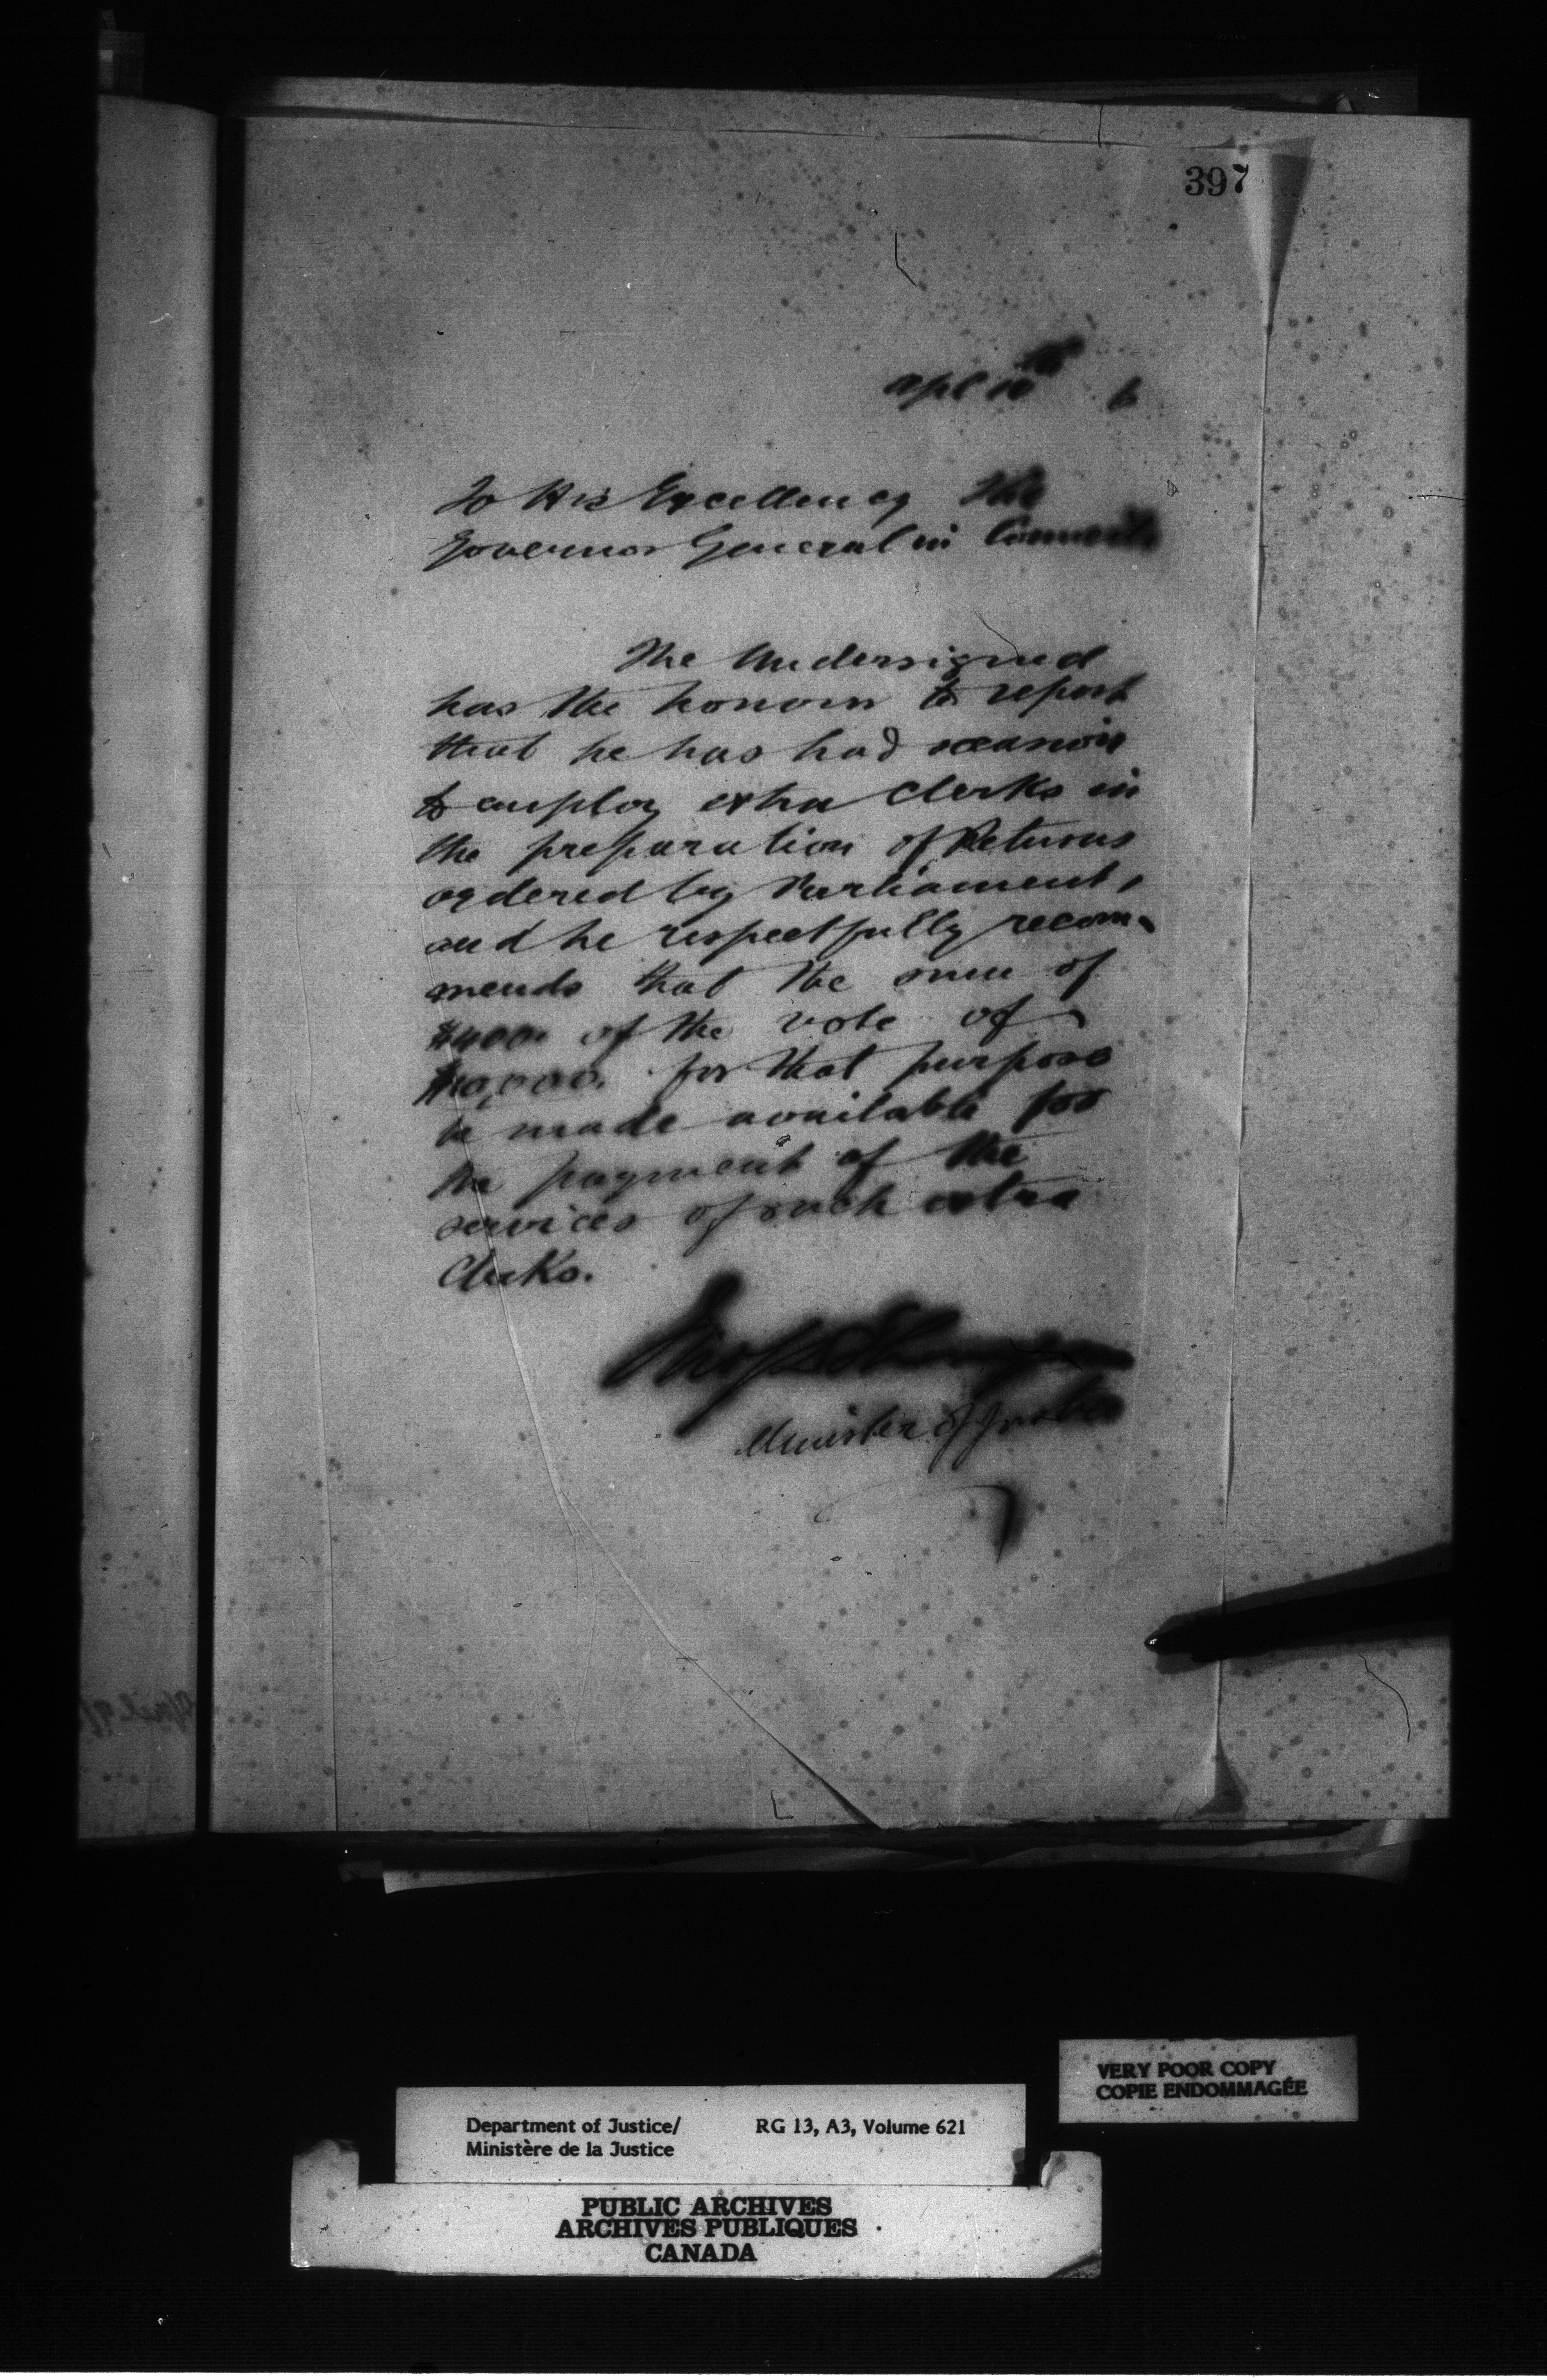 397
Apl 10th 6
To His Excellency the
Governor General in Council
The Undersigned
has the honour to report
that he has had occasion
to employ extra Clerks in
the preparation of Returns
ordered by Parliament,
and he respectfully recom-
mends that the sum of
$400. of the vote of
$10,000. for that purpose
be made available for
the payment of the
services of such extra
Clerks.
Jno S D Thompson
Minister of Justice
VERY POOR COPY
COPIE ENDOMMAGÉE
Department of Justice/ RG 13, A3, Volume 621
Ministère de la Justice
PUBLIC ARCHIVES
ARCHIVES PUBLIQUES
CANADA